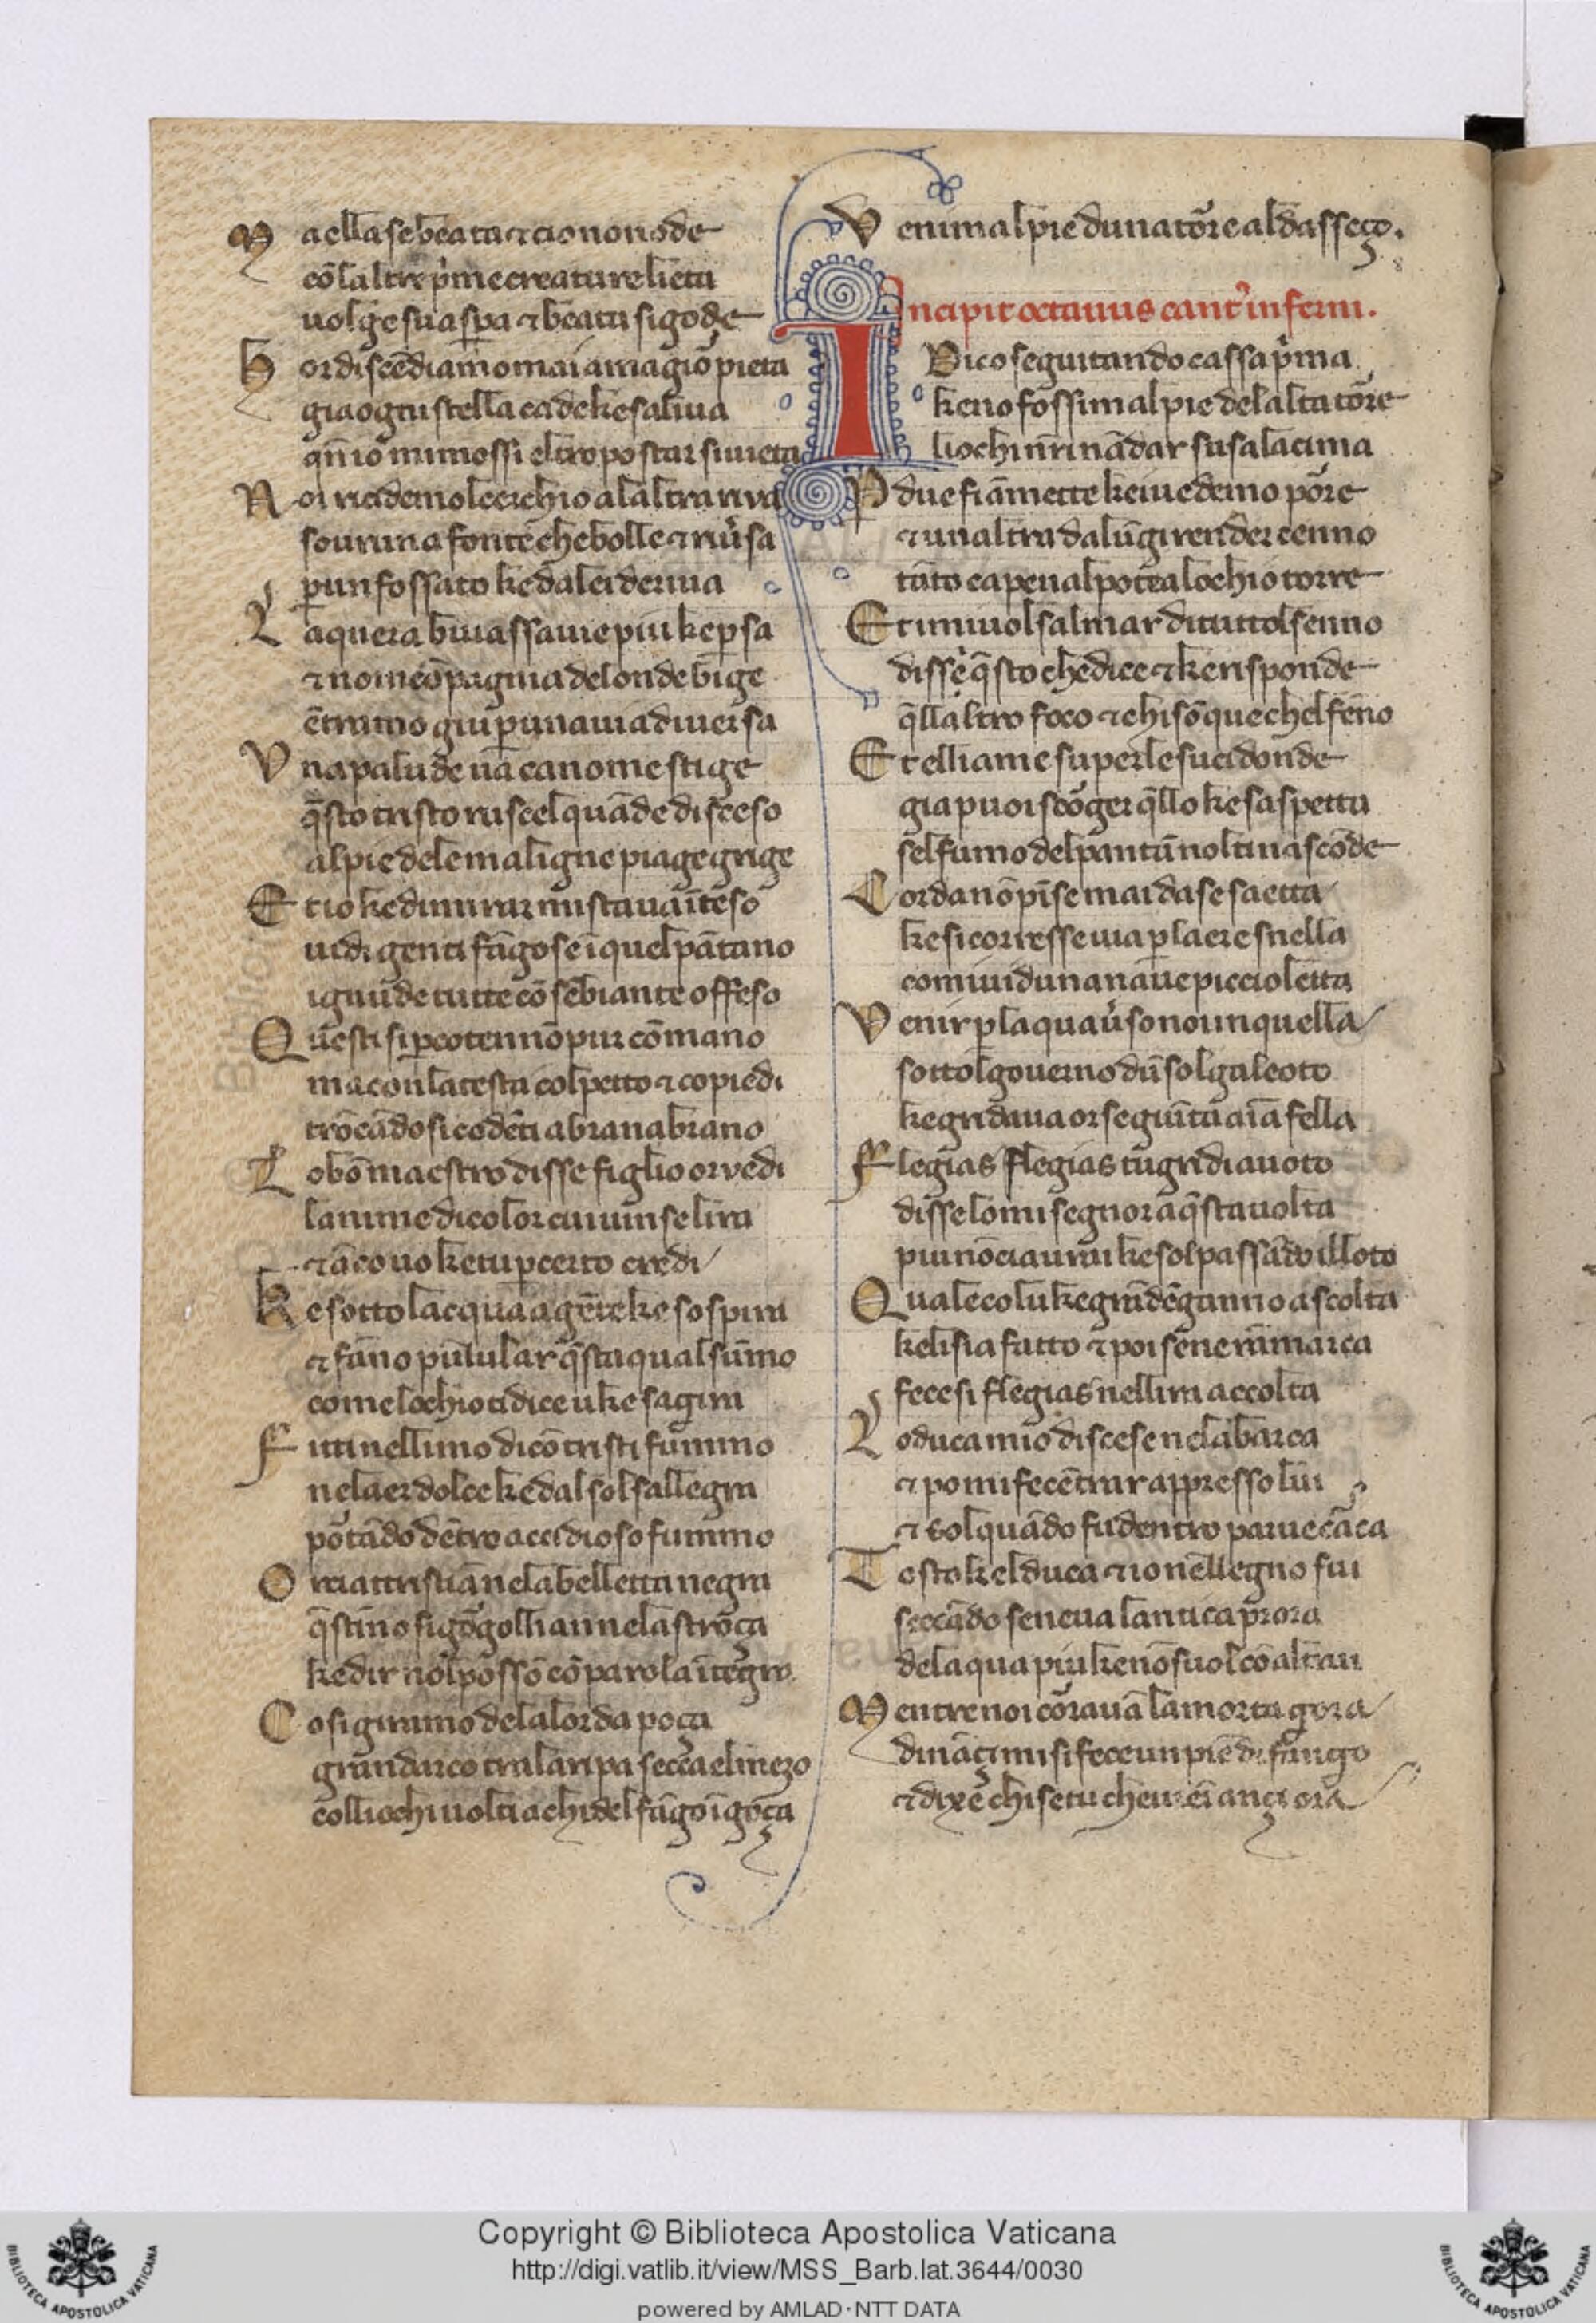 M a ella se beata et cio non ode
cō laltre p̄me creature lieta
uolge sua spa et beata si gode
H or discēdiamo mai a magiō pieta
gia ogni stella cade ke saliua
qn̄ io mi mossi el tropo star si uieta
N oi ricidemo lo cerchio a laltra riva
sour una fonte che bolle et riu͛sa
p̱ un fossato ke da lei deriua
L aquera buia assai e piu ke persa
et noi cōpagnia de londe bige
ētramo giu p̱ una uia diuersa
V na palude ua ca nome stige
q̄sto tristo ruscel quāde disceso
al pie dele maligne piage grige
E t io ke di mirar mi staua īteso
uidi genti fāgose ī quel pātano
ignude tutte cō sēbiante offeso
Q uesti si p̱coten nō pur cō mano
ma con la testa col petto et co piedi
trōcādosi co dēti a brana brano
L o bō maestro disse figlio or vedi
lanime di color cui uinse lira
et āco uo ke tu p̱ certo credi
K e sotto lacqua a gēte ke sospira
et fāno pullular q̄sta qual sūmo
come lochio ti dice u ke sagira
F itti nel limo dicō tristi fummo
nelaer dolce ke dal sol sallegra
portādo dētro accidioso fummo
O r ci attristiā nela belletta negra
q̄stīno si gorgollian nela stroça
ke dir nol possō cō parola ītegra
C osi giramo dela lorda poça
grandarco tra la ripa secca el meço
colli ochi uolti a chi del fāgo īgoça
V enimal pie duna torre al dasseço.
Incipit octauus cant᾽ inferni.
I Dico seguitando cassa p̄ma
ke no fossimal pie delalta torre
li ochi nr̄i nādar susa la cima
P due fiāmette ke iuedemo porre
et unaltra da lūgi render cenno
tāto ca pena l potea lochio torre
E t i mi uolsal mar di tuttol senno
disse q̄sto che dice et ke risponde
q̄llaltro foco et chi sō que chel fēno
E t elli a me super le suci donde
gia puoi scorger q̄llo ke saspetta
sel fumo del pantā nol ti nascōde
C orda nō pīse mai da se saetta
ke si corresse uia p̱ laere snella
com i uidi una naue piccioletta
V enir p̱ laqua u͛so noi in quella
sottol gouerno dū sol galeoto
ke gridaua or se giūta aīa fella
F legias flegias tu gridi a uoto
disse lo mi segnor a q̄sta uolta
piu nō ci aurai ke sol passādo il loto
Q uale colui ke grādēganno ascolta
keli sia fatto et poi sene ramarca
fecesi flegias nellira accolta
L o duca mio discese nela barca
et poi mi fece ītrar appresso lui
et sol quādo fu dentro parue carca
T osto kel duca et io nel legno fui
secādo sen eua lantica prora
delaqua piu ke nō suol cō altrui
M entre noi corauā la morta gora
dināçi mi si fece un piē di fango
et dixe chi se tu che uieī ançi ora
Copyright © Biblioteca Apostolica Vaticana
http://digi.vatlib.it/view/MSS_Barb.lat.3644/0030
powered by AMLAD·NTT DATA
BIBLIOTECA APOSTOLICA VATICANA
BIBLIOTECA APOSTOLICA VATICANA